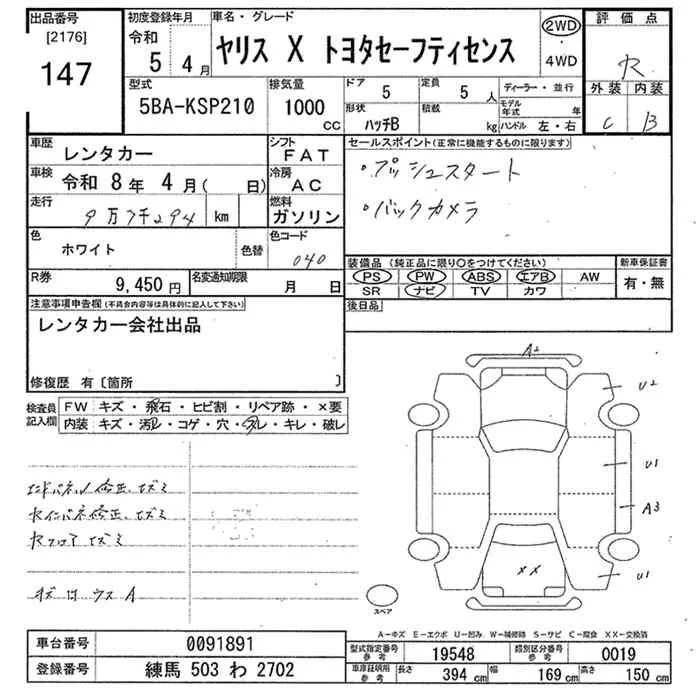 出品番号 [2176] 147
初度登録年月 令和 5 4月
車名・グレード ヤリス X トヨタセーフティセンス
2WD・4WD
評価点 R
外装 内装
C B
型式 5BA-KSP210
排気量 1000 CC
ドア 5
定員 5 人
形状 ハッチB
積載 kg
ディーラー・並行
モデル年式 年
ハンドル 左・右
車歴 レンタカー
シフト FAT
車検 令和 8年 4月 ( 日)
冷房 AC
走行 9万7千294 km
燃料 ガソリン
色 ホワイト 色替
色コード 040
R券 9,450円
名変通知期限 月 日
セールスポイント(正常に機能するものに限ります)
・プッシュスタート
・バックカメラ
装備品(純正品に限り○をつけてください)
PS PW ABS エアB AW
SR ナビ TV カワ
新車保証書 有・無
後日品
注意事項申告欄(不具合内容等は具体的に記入して下さい)
レンタカー会社出品
修復歴 有〔箇所 〕
検査員記入欄
FW キズ・飛石・ヒビ割・リペア跡・×要
内装 キズ・汚レ・コゲ・穴・スレ・キレ・破レ
エンドパネル修正、エズミ
Rインパネ修正、エズミ
Rフロア エズミ
A2
U2
U1
A3
U1
××
スペア
A-キズ E-エクボ U-凹み W-補修跡 S-サビ C-腐食 XX-交換済
車台番号 0091891
登録番号 練馬 503 わ 2702
型式指定番号 参考 19548
類別区分番号 参考 0019
車庫証明用 参考 長さ 394 cm 幅 169 cm 高さ 150 cm